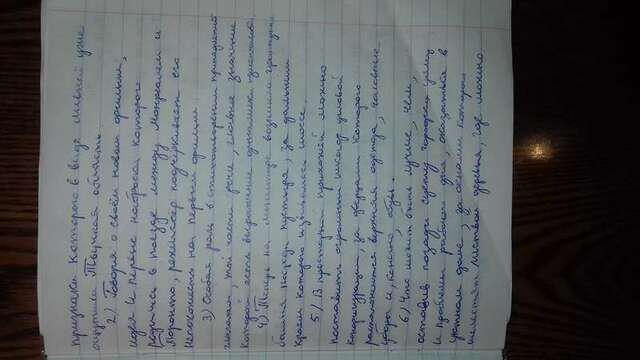 признаки которого в виде ливней уже
ощутила Тверская область.
2) Говоря о своём новом фильме,
идея и первые наброски которого
родились в поезде между Монреалем и
Торонто, режиссёр подчёркивает его
непохожесть на первый фильм.
3) Особая роль в стихотворении принадлежит
глаголам, той части речи, главное значение
которой есть выражение динамики
4) Теперь на мониторе возникла
башня посреди пустыря, за дальним
краем которого извивалось шоссе.
5) В просторной прихожей можно
поставить огромный шкаф угловой
конфигурации, за дверцами которого
расположится верхняя одежда, головные
уборы и, конечно, обувь.
6) Что может быть лучше, чем,
оставив позади суету городских улиц
и проблемы рабочего дня, оказаться в
уютном доме, за окнами которого
шелестят листвой деревья, где можно